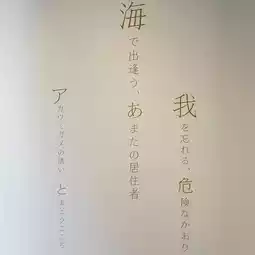 我を忘れる、危険なかおり
海で出逢う、あまたの居住者
アカウミガメの誘い と